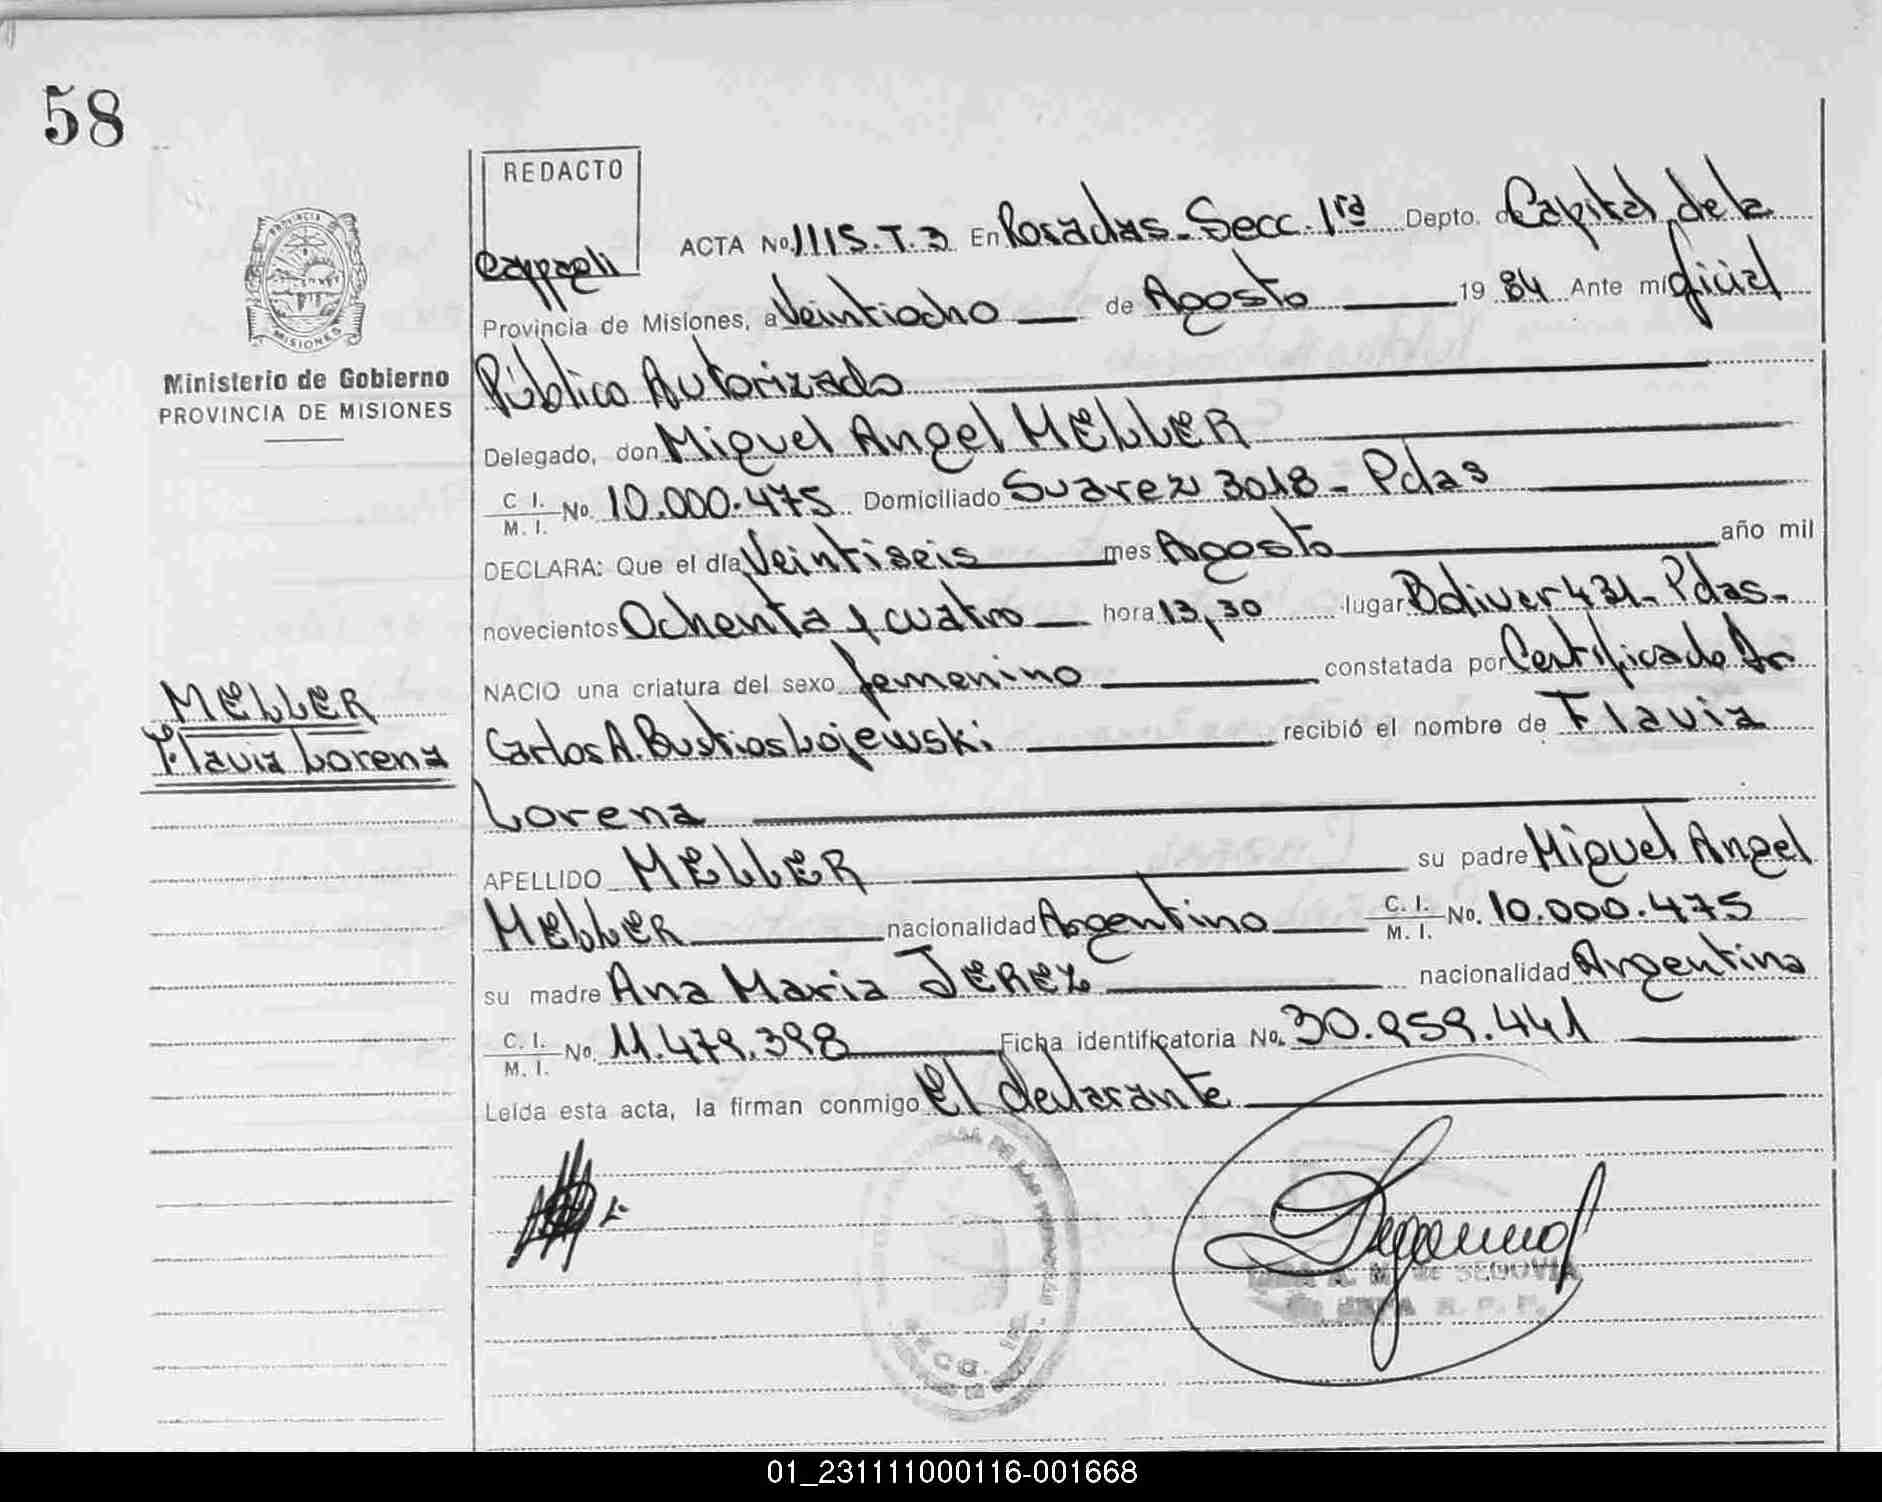 58
REDACTO
Cappeli
ACTA No. 1115.T.3 En Posadas - Secc. 1rd Depto. de Capital de la
Provincia de Misiones, a Veintiocho de Agosto 19 84 Ante mí Oficial
Público Autorizado
Delegado, don Miguel Angel MELLER
C. I.
M. I. No. 10.000.475 Domiciliado Suarez 3018 - Pdas
DECLARA: Que el día Veintiseis mes Agosto año mil
novecientos Ochenta y cuatro hora 13,30 lugar Bolivar 431 - Pdas -
NACIO una criatura del sexo femenino constatada por Certificado Dr
Carlos A. Bustios Lojewski recibió el nombre de Flavia
Lorena
APELLIDO MELLER su padre Miguel Angel
MELLER nacionalidad Argentino C. I.
M. I. No. 10.000.475
su madre Ana Maria JEREZ nacionalidad Argentina
C. I.
M. I. No. 11.479.398 Ficha identificatoria No. 30.959.441
Leída esta acta, la firman conmigo el declarante
PROVINCIA
MISIONES
Ministerio de Gobierno
PROVINCIA DE MISIONES
MELLER
Flavia Lorena
SECC. 1ra.
M. de SEGOVIA
JEFA R. P. P.
01_231111000116-001668